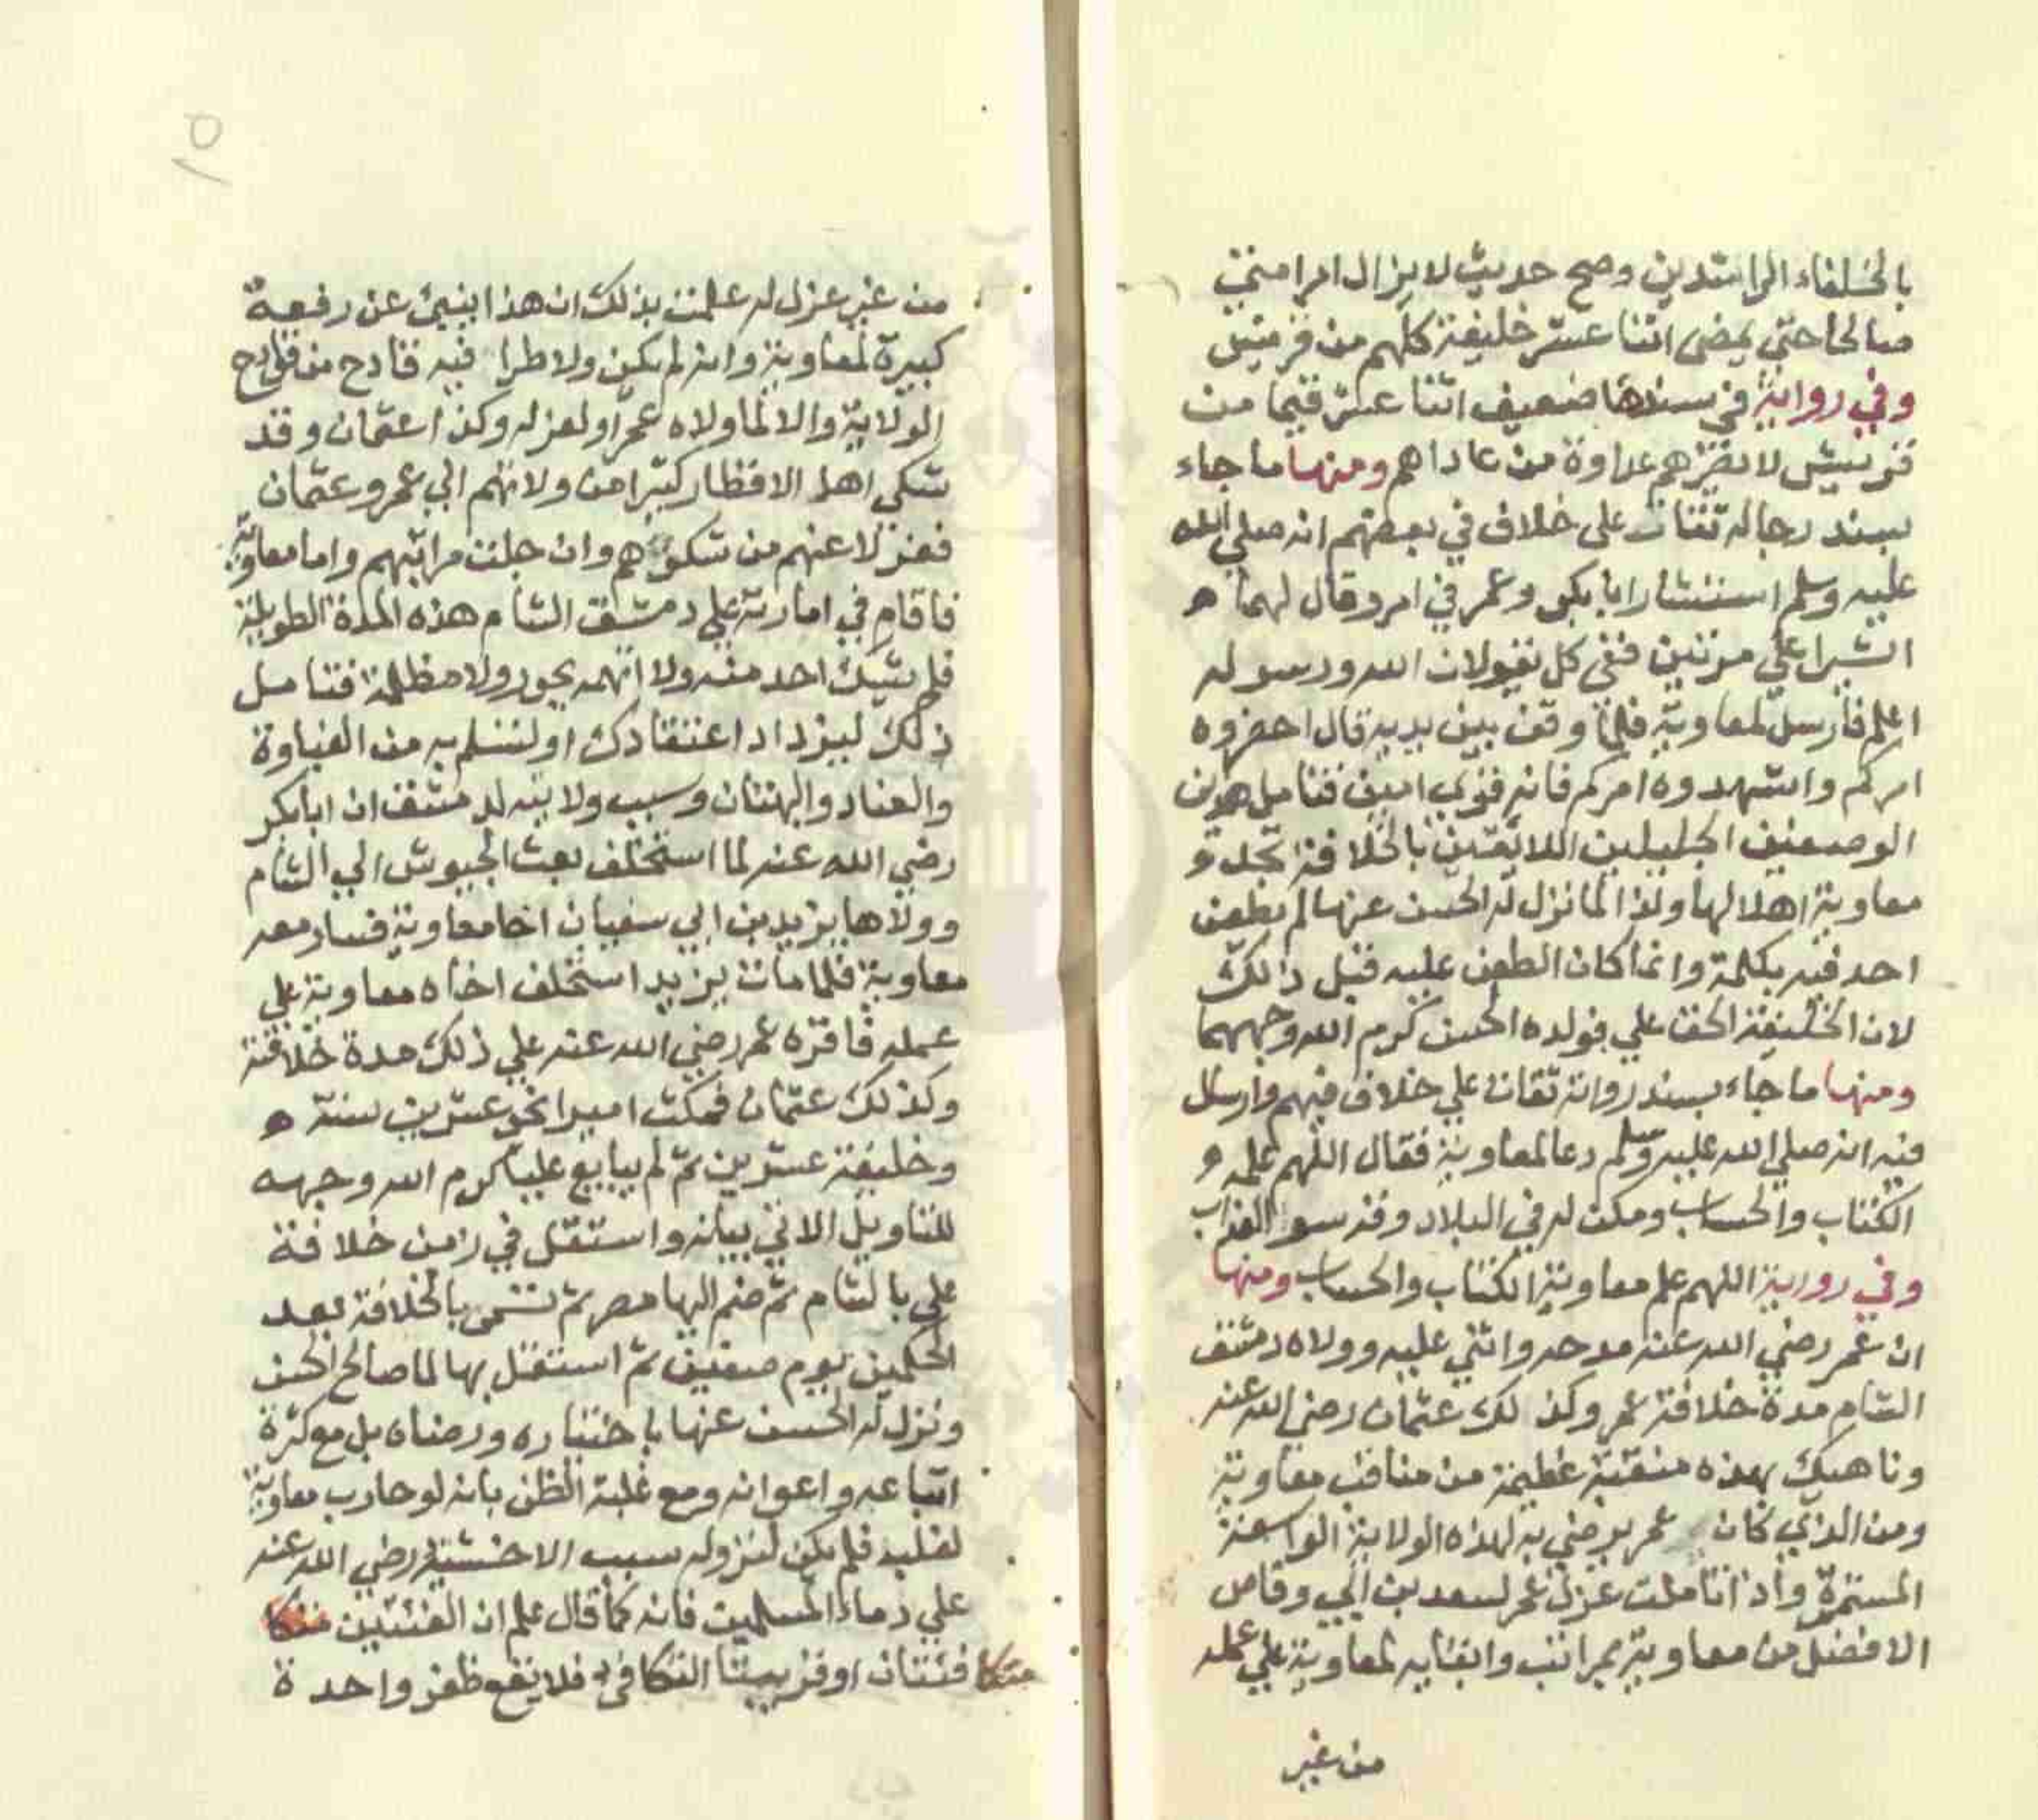 بالخلفاء الراشدين وصح حديث لا يزال امر امتي
صالحا حتي يمضى اثنا عشر خليفة كلهم من قريش
وفي رواية في سندها ضعيف اثنا عشر قيما من
قريش لا يضرهم عداوة من عاداهم ومنها ما جاء
بسند رجاله ثقات على خلاف في بعضهم انه صلي الله
عليه وسلم استشار ابا بكر وعمر في امر وقال لهما
اشيرا علي مرتين ففي كل يقولان الله ورسوله
اعلم فارسل لمعاوية فلما وقف بين يديه قال احضروه
امركم واشهدوه امركم فانه قوي امين فتامل هذين
الوصفين الجليلين اللائقين بالخلافة تجد
معاوية اهلا لها ولذا لما نزل له الحسن عنها لم يطعن
احد فيه بكلمة وانما كان الطعن عليه قبل ذلك
لان الخليفة الحق علي فولده الحسن كرم الله وجههما
ومنها ما جاء بسند رواته ثقات علي خلاف فيهم وارسال
فيه انه صلي الله عليه وسلم دعا لمعاوية فقال اللهم علمه
الكتاب والحساب ومكن له في البلاد وقه سوء العذاب
وفي رواية اللهم علم معاوية الكتاب والحساب ومنها
ان عمر رضي الله عنه مدحه واثني عليه وولاه دمشق
الشام مدة خلافة عمر وكذلك عثمان رضي الله عنه
وناهيك بهذه منقبة عظيمة من مناقب معاوية
ومن الذي كان عمر يرضي به لهذه الولاية الواسعة
المستمرة واذا تاملت عزل عمر لسعد بن ابي وقاص
الافضل من معاوية بمراتب وابقائه لمعاوية علي عمله
من غير
١٥
من غير عزل له علمت بذلك ان هذا ينبئ عن رفعة
كبيرة لمعاوية وانه لم يكن ولا طرا فيه قادح من قوادح
الولاية والا لما ولاه عمر او لعزله وكذا عثمان وقد
شكى اهل الاقطار كثيرا من ولاتهم الي عمر وعثمان
فعزلا عنهم من شكوهم وان جلت مراتبهم واما معاوية
فاقام في امارته علي دمشق الشام هذه المدة الطويلة
فلم يشك احد منه ولا اتهمه بجور ولا مظلمة فتامل
ذلك ليزداد اعتقادك او لتسلم به من الغباوة
والعناد والبهتان وسبب ولايته لدمشق ان ابا بكر
رضي الله عنه لما استخلف بعث الجيوش الي الشام
وولاها يزيد بن ابي سفيان اخا معاوية فسار معه
معاوية فلما مات يزيد استخلف اخاه معاوية علي
عمله فاقره عمر رضي الله عنه علي ذلك مدة خلافته
وكذلك عثمان فمكث اميرا نحو عشرين سنة
وخليفة عشرين ثم لم يبايع عليا كرم الله وجهه
للتاويل الاتي بيانه واستقل في زمن خلافة
علي بالشام ثم ضم اليها مصر ثم تسمى بالخلافة بعد
الحكمين يوم صفين ثم استقل بها لما صالح الحسن
ونزل له الحسن عنها باختياره ورضاه بل مع كثرة
اتباعه واعوانه ومع غلبة الظن بانه لو حارب معاوية
لغلبه فلم يكن لنزوله سبب الا خشيته رضي الله عنه
علي دماء المسلمين فانه كما قال علم ان الفئتين متكا
متكا فئتان او قريبتا التكافئ فلا يقع ظفر واحدة